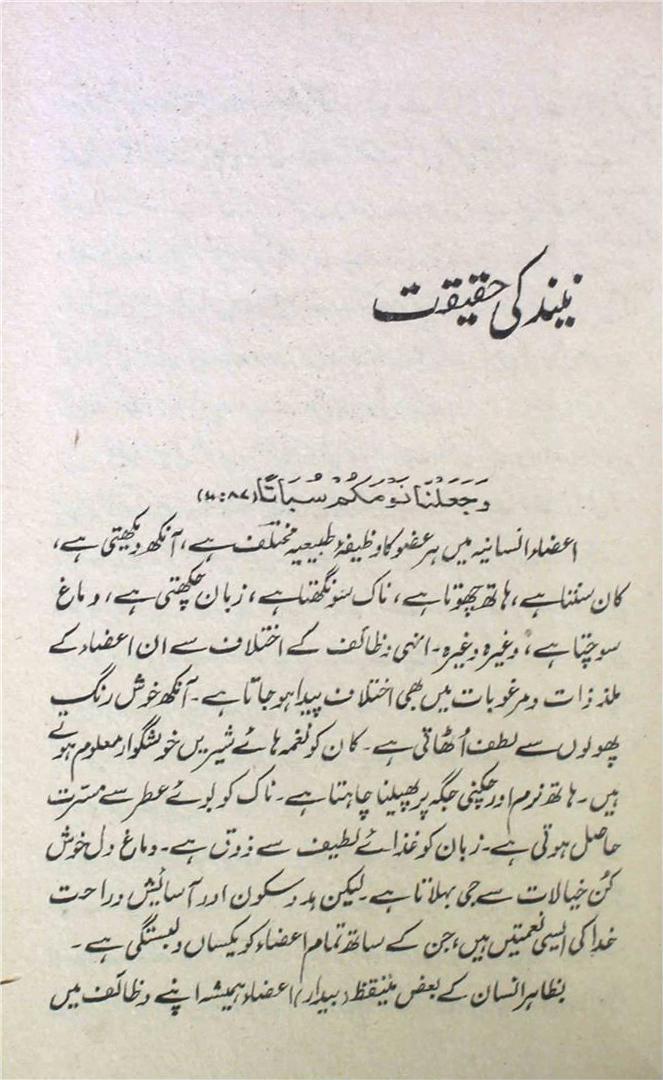 نیند کی حقیقت
وَجَعَلْنَا نَوْمَكُمْ سُبَاتًا (۷۸:۹)
اعضاء انسانیہ میں ہر عضو کا وظیفۂ طبیعیہ مختلف ہے، آنکھ دیکھتی ہے،
کان سنتا ہے، ہاتھ چھوتا ہے، ناک سونگھتا ہے، زبان چکھتی ہے، دماغ
سوچتا ہے، وغیرہ وغیرہ۔ انہی وظائف کے اختلاف سے ان اعضاء کے
ملذذات و مرغوبات میں بھی اختلاف پیدا ہو جاتا ہے۔ آنکھ خوش رنگ
پھولوں سے لطف اُٹھاتی ہے۔ کان کو نغمہ ہائے شیریں خوشگوار معلوم ہوتے
ہیں۔ ہاتھ نرم اور چکنی جگہ پر پھیلنا چاہتا ہے۔ ناک کو بوئے عطر سے مسرت
حاصل ہوتی ہے۔ زبان کو غذائے لطیف سے ذوق ہے۔ دماغ دل خوش
کُن خیالات سے جی بہلاتا ہے۔ لیکن ہدو سکون اور آسایش و راحت
خدا کی ایسی نعمتیں ہیں، جن کے ساتھ تمام اعضاء کو یکساں دلبستگی ہے۔
بظاہر انسان کے بعض متیقظ (بیدار) اعضاء ہمیشہ اپنے وظائف میں